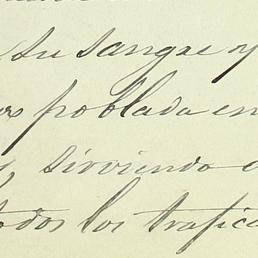 su sangre y
poblada en
sirviendo
todos los trafica